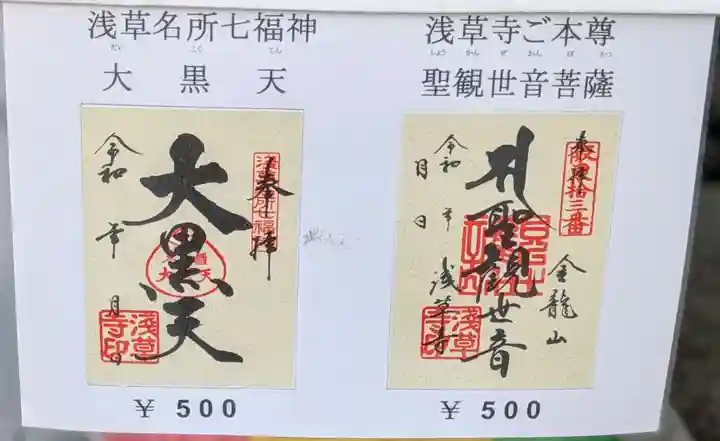 浅草名所七福神
だい こく てん
大黒天
奉拝
浅草名所七福神
大黒天
令和 年 月 日
浅草寺印
¥ 500
浅草寺ご本尊
しょう かん ぜ おん ぼ さつ
聖観世音菩薩
奉拝
坂東拾三番
金龍山
聖観世音
令和 年
月 日
浅草寺
浅草寺印
¥ 500